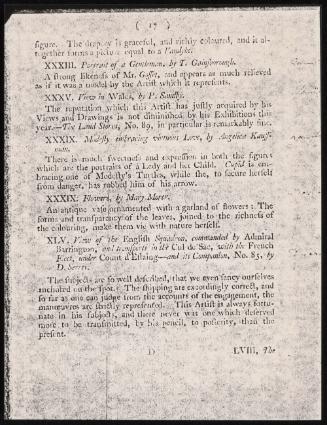 ( 17 )
figure. The drapery is graceful, and richly coloured, and it al-
together forms a picture equal to a Vandyke.
XXXIII. Portrait of a Gentleman, by T. Gainsborough.
A strong likeness of Mr. Gosset, and appears as much relieved
as if it was a model by the Artist which it represents.
XXXV. View in Wales, by P. Sandby.
The reputation which this Artist has justly acquired by his
Views and Drawings is not diminished by his Exhibitions this
year.—The Land Storm, No. 89, in particular is remarkably fine.
XXXIX. Modesty embracing virtuous Love, by Angelica Kauff-
man.
There is much sweetness and expression in both the figures
which are the portraits of a Lady and her Child. Cupid is em-
bracing one of Modesty's Turtles, while she, to secure herself
from danger, has robbed him of his arrow.
XXXIX. Flowers, by Mary Moser.
An antique vase ornamented with a garland of flowers. The
forms and transparency of the leaves, joined to the richness of
the colouring, make them vie with nature herself.
XLV. View of the English Squadron, commanded by Admiral
Barrington, and transports in the Cul de Sac, with the French
Fleet, under Count d'Estaing—and its Companion, No. 85, by
D. Serres.
The subjects are so well described, that we even fancy ourselves
anchored on the spot. The shipping are exceedingly correct, and
so far as one can judge from the accounts of the engagement, the
manœuvres are finely represented. This Artist is always fortu-
nate in his subjects, and there never was one which deserved
more to be transmitted, by his pencil, to posterity, than the
present.
D
LVIII. The